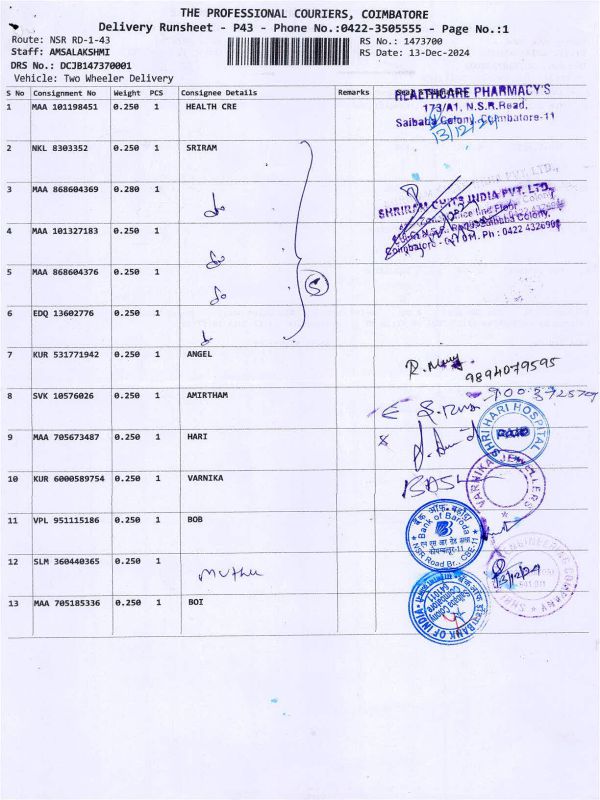 THE PROFESSIONAL COURIERS, COIMBATORE
Delivery Runsheet - P43 - Phone No.:0422-3505555 - Page No.:1
Route: NSR RD-1-43
RS No.: 1473700
Staff: AMSALAKSHMI
RS Date: 13-Dec-2024
DRS No.: DCJB147370001
Vehicle: Two Wheeler Delivery
S No Consignment No Weight PCS Consignee Details Remarks
1 MAA 101198451 0.250 1 HEALTH CRE
HEALTHCARE PHARMACY'S
173/A1, N.S.R.Road,
Saibaba Colony, Coimbatore-11
13/12/24
2 NKL 8303352 0.250 1 SRIRAM
3 MAA 868604369 0.280 1 do
SHRIRAM CHITS INDIA PVT. LTD.,
Saibaba Colony,
Coimbatore - Ph : 0422 4326905
4 MAA 101327183 0.250 1 do
5 MAA 868604376 0.250 1 do
5
6 EDQ 13602776 0.250 1
7 KUR 531771942 0.250 1 ANGEL
9894079595
8 SVK 10576026 0.250 1 AMIRTHAM
9 MAA 705673487 0.250 1 HARI
SHRI HARI HOSPITAL
PAID
10 KUR 6000589754 0.250 1 VARNIKA
VARNIKA JEWELLERS
11 VPL 951115186 0.250 1 BOB
बैंक ऑफ़ बड़ौदा
Bank of Baroda
NSR Road Br., CBE-11
12 SLM 360440365 0.250 1 Muthu
ENGINEERING COMPANY
13/12/24
13 MAA 705185336 0.250 1 BOI
BANK OF INDIA
Saibaba Colony
Coimbatore